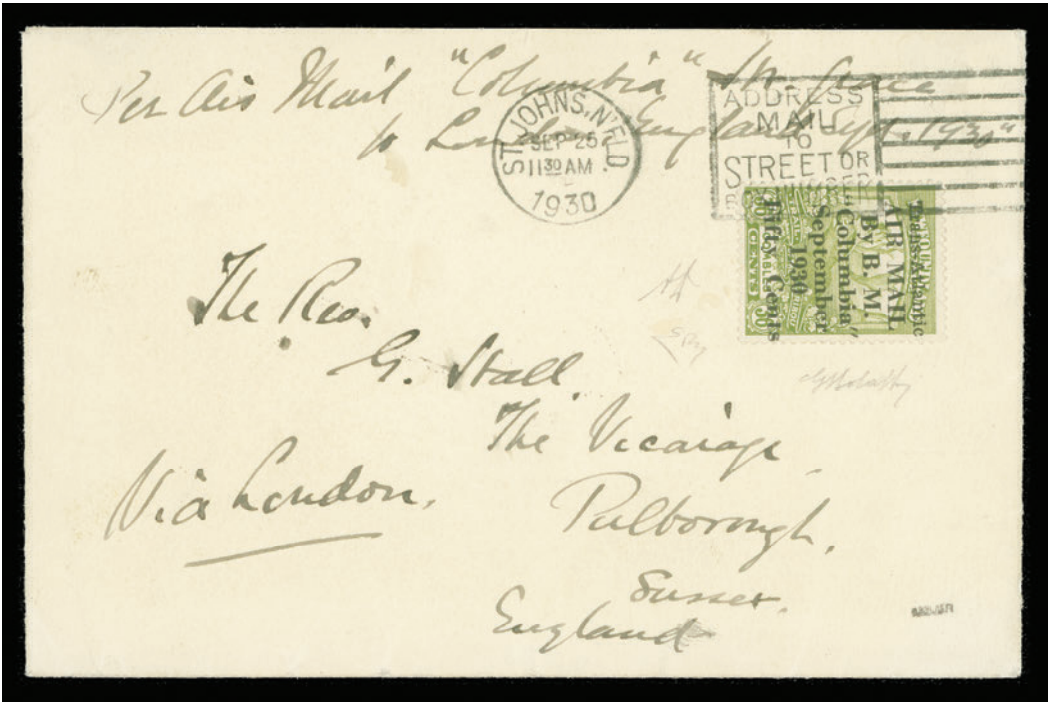 Per Air Mail "Columbia" Hr. Grace
to London England Sept. 1930"
ST. JOHN'S, N'F'L'D
SEP 25
11 30 AM
1930
ADDRESS
MAIL
TO
STREET OR
Trans-Atlantic
AIR MAIL
By B. M.
"Columbia"
September
1930
Fifty Cents
The Rev.
G. Stall
The Vicarage
Pulborough,
Sussex.
England
Via London.